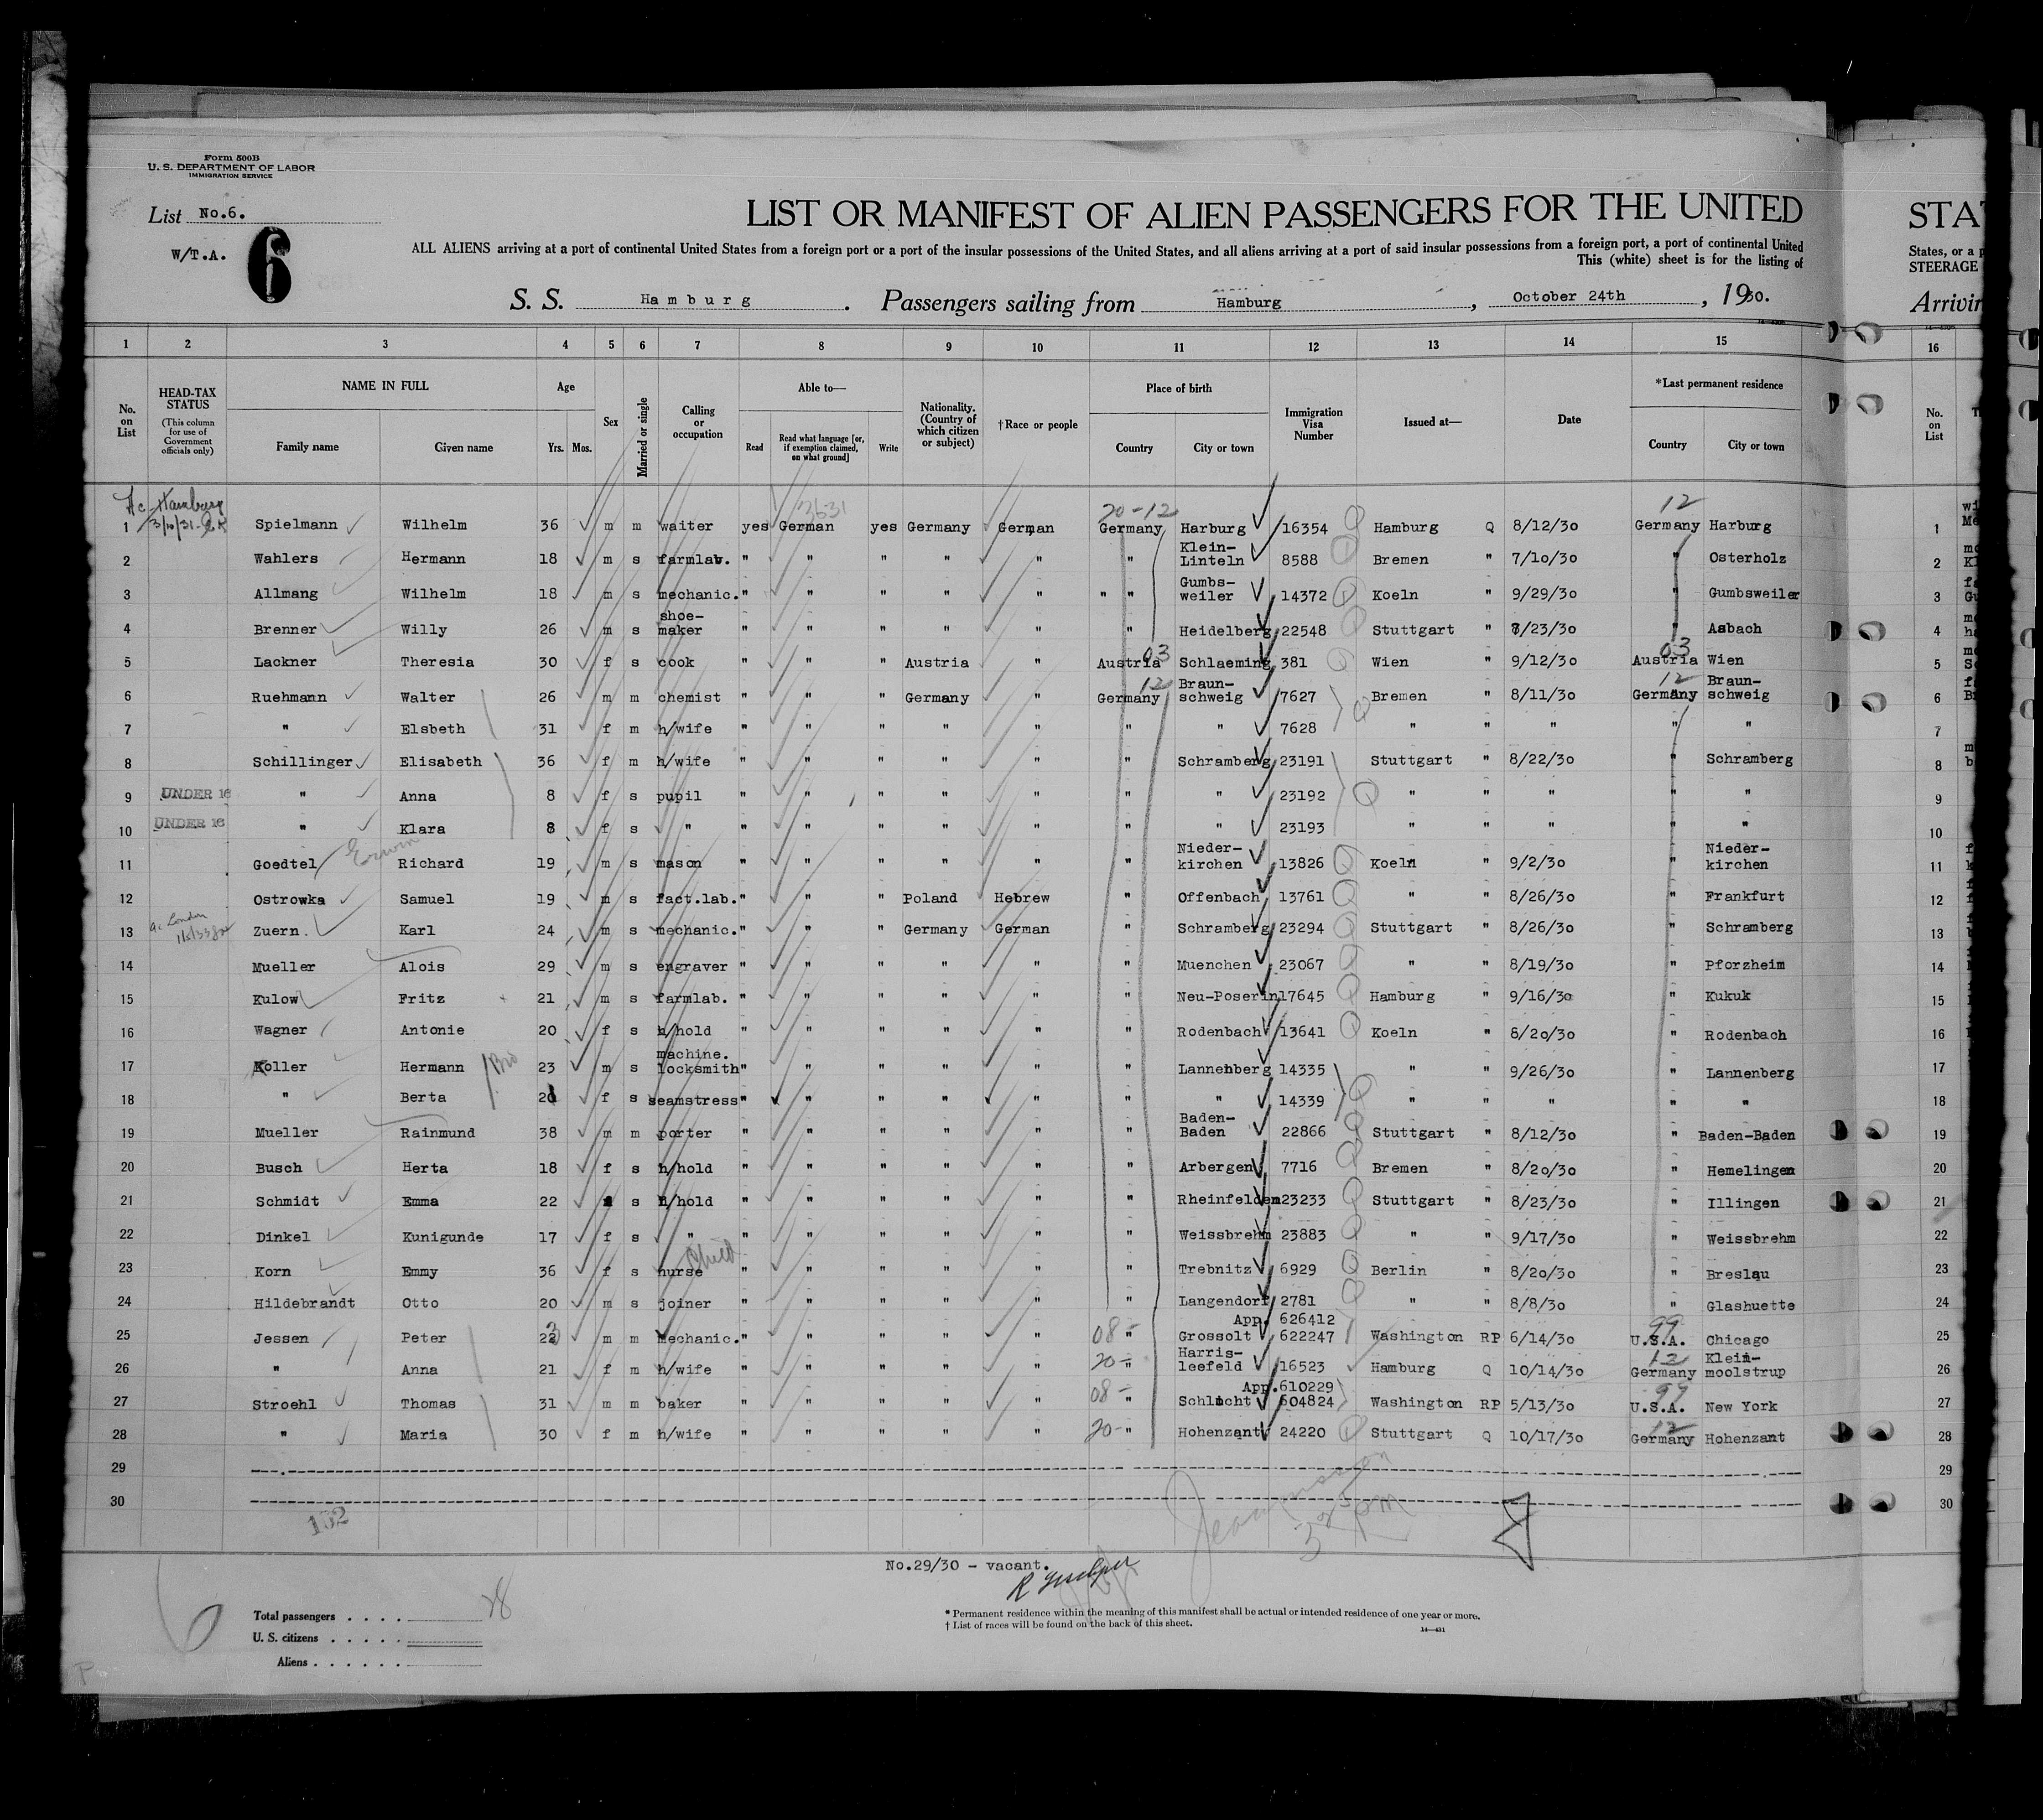 Form 500B
U. S. DEPARTMENT OF LABOR
IMMIGRATION SERVICE
List No.6.
W/T.A. 6
LIST OR MANIFEST OF ALIEN PASSENGERS FOR THE UNITED STA
ALL ALIENS arriving at a port of continental United States from a foreign port or a port of the insular possessions of the United States, and all aliens arriving at a port of said insular possessions from a foreign port, a port of continental United States, or a
This (white) sheet is for the listing of STEERAGE
S. S. Hamburg. Passengers sailing from Hamburg, October 24th, 1930. Arrivin
1 2 3 4 5 6 7 8 9 10 11 12 13 14 15 16
No. on List
HEAD-TAX STATUS (This column for use of Government officials only)
NAME IN FULL Family name Given name
Age Yrs. Mos.
Sex
Married or single
Calling or occupation
Able to— Read Read what language [or, if exemption claimed, on what ground] Write
Nationality. (Country of which citizen or subject)
†Race or people
Place of birth Country City or town
Immigration Visa Number
Issued at—
Date
*Last permanent residence Country City or town
No. on List
Hamburg 3/10/31 2631 20-12 12
1 Spielmann Wilhelm 36 m m waiter yes German yes Germany German Germany Harburg 16354 Hamburg Q 8/12/30 Germany Harburg 1
2 Wahlers Hermann 18 m s farmlab. " " " " " " Klein-Linteln 8588 Bremen " 7/10/30 " Osterholz 2
3 Allmang Wilhelm 18 m s mechanic. " " " " " " " Gumbs-weiler 14372 Koeln " 9/29/30 " Gumbsweiler 3
4 Brenner Willy 26 m s shoe-maker " " " " " " Heidelberg 22548 Stuttgart " 8/23/30 " Aabach 4
5 Lackner Theresia 30 f s cook " " " Austria " Austria 03 Schlaeming 381 Wien " 9/12/30 Austria 03 Wien 5
6 Ruehmann Walter 26 m m chemist " " " Germany " Germany 12 Braun-schweig 7627 Bremen " 8/11/30 Germany 12 Braun-schweig 6
7 " Elsbeth 31 f m h/wife " " " " " " " 7628 " " " " " 7
8 Schillinger Elisabeth 36 f m h/wife " " " " " " Schramberg 23191 Stuttgart " 8/22/30 " Schramberg 8
9 UNDER 16 " Anna 8 f s pupil " " " " " " " 23192 " " " " " 9
10 UNDER 16 " Klara 8 f s " " " " " " " " 23193 " " " " " 10
11 Goedtel Erwin Richard 19 m s mason " " " " " " Nieder-kirchen 13826 Koeln " 9/2/30 " Nieder-kirchen 11
12 Ostrowka Samuel 19 m s fact.lab. " " " Poland Hebrew " Offenbach 13761 " " 8/26/30 " Frankfurt 12
13 London Zuern. Karl 24 m s mechanic. " " " Germany German " Schramberg 23294 Stuttgart " 8/26/30 " Schramberg 13
14 Mueller Alois 29 m s engraver " " " " " " Muenchen 23067 " " 8/19/30 " Pforzheim 14
15 Kulow Fritz 21 m s farmlab. " " " " " " Neu-Poserin 17645 Hamburg " 9/16/30 " Kukuk 15
16 Wagner Antonie 20 f s h/hold " " " " " " Rodenbach 13641 Koeln " 8/20/30 " Rodenbach 16
17 Koller Hermann Bro 23 m s machine. locksmith " " " " " " Lannenberg 14335 " " 9/26/30 " Lannenberg 17
18 " Berta 20 f s seamstress " " " " " " " 14339 " " " " " 18
19 Mueller Rainmund 38 m m porter " " " " " " Baden-Baden 22866 Stuttgart " 8/12/30 " Baden-Baden 19
20 Busch Herta 18 f s h/hold " " " " " " Arbergen 7716 Bremen " 8/20/30 " Hemelingen 20
21 Schmidt Emma 22 s h/hold " " " " " " Rheinfelden 23233 Stuttgart " 8/23/30 " Illingen 21
22 Dinkel Kunigunde 17 f s " " " " " " " Weissbrehm 23883 " " 9/17/30 " Weissbrehm 22
23 Korn Emmy 36 f s Child nurse " " " " " " Trebnitz 6929 Berlin " 8/20/30 " Breslau 23
24 Hildebrandt Otto 20 m s joiner " " " " " " Langendorf 2781 " " 8/8/30 " Glashuette 24
25 Jessen Peter 23 m m Mechanic. " " " " " 08- " Grossolt App. 626412 622247 Washington RP 6/14/30 U.S.A. 99 Chicago 25
26 " Anna 21 f m h/wife " " " " " 20- " Harris-leefeld 16523 Hamburg Q 10/14/30 Germany 12 Klein-moolstrup 26
27 Stroehl Thomas 31 m m baker " " " " " 08- " Schlicht App. 610229 604824 Washington RP 5/13/30 U.S.A. 99 New York 27
28 " Maria 30 f m h/wife " " " " " 20- " Hohenzant 24220 Stuttgart Q 10/17/30 Germany 12 Hohenzant 28
29 29
30 30
132
No.29/30 - vacant.
6
Total passengers . . . . 28
U. S. citizens . . . . .
Aliens . . . . . .
* Permanent residence within the meaning of this manifest shall be actual or intended residence of one year or more.
† List of races will be found on the back of this sheet.